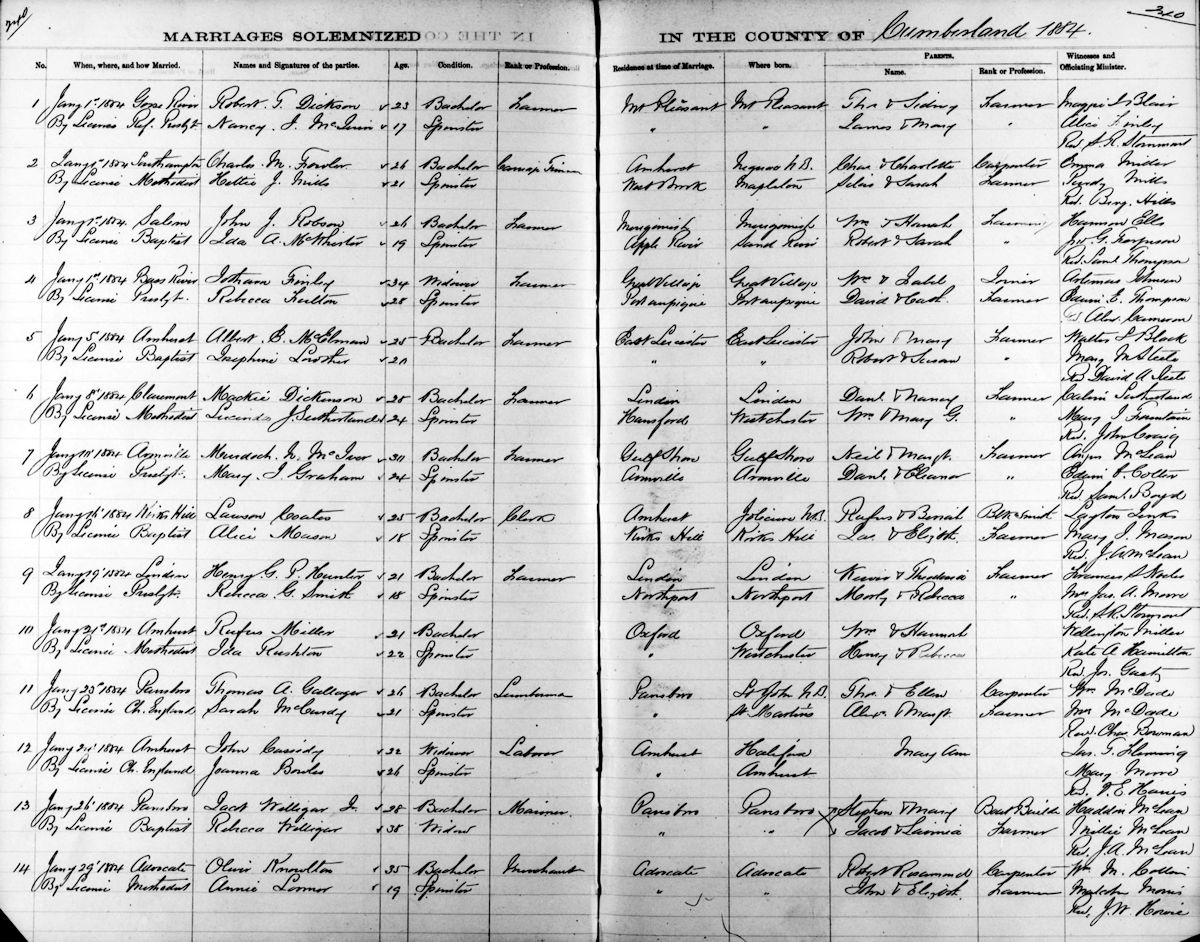 340
340
MARRIAGES SOLEMNIZED IN THE COUNTY OF Cumberland 1884.
No. When, where, and how Married. Names and Signatures of the parties. Age. Condition. Rank or Profession. Residence at time of Marriage. Where born. PARENTS. Name. Rank or Profession. Witnesses and Officiating Minister.
1 Jany 1st 1884 River Robert T. Dickson 23 Bachelor Farmer Mt Pleasant Mt Pleasant Thos & Sidney Farmer Blair
By License Ref. Presbyt Nancy J. 17 Spinster " " James & Mary " Alice Finley
Rev.
2 Jany 1st 1884 Southampton Charles M. Fowler 26 Bachelor Amherst N.B. Chas & Charlotte Carpenter Emma
By License Methodist Hettie J. Mills 21 Spinster West Brook Mapleton Silas & Sarah Farmer Mills
Rev. Benj. Hills
3 Jany 1st 1884 Salem John J. Robson 26 Bachelor Farmer Wm & Hannah Farmer Harmon Ells
By License Baptist Ida A. 19 Spinster Apple River Sand River Robert & Sarah " G. Ferguson
Rev. Saml Thompson
4 Jany 1st 1884 Bass River Jotham Finley 34 Widower Farmer Great Village Great Village Wm & Isabel Joiner Artemas Johnson
By License Presbyt. Rebecca Fulton 28 Spinster Portaupique Portaupique David & Cath. Farmer Edwin E. Thompson
Alex. Cameron
5 Jany 5 1884 Amherst Albert E. McElman 25 Bachelor Farmer East Leicester East Leicester John & Mary Farmer Walter S Black
By License Baptist Josephine Lowther 20 " " Robert & Susan " Mary M Steele
David A Steele
6 Jany 8th 1884 Claremont Mackie Dickinson 28 Bachelor Farmer Linden Linden Danl. & Nancy Farmer Calvin Sutherland
By License Methodist Lucinda J. Sutherland 24 Spinster Hansford Westchester Wm. & Mary G. " Mary J. Fountain
Rev. John Craig
7 Jany 1884 Murdoch N. McIvor 30 Bachelor Farmer Gulf Shore Gulf Shore Neil & Margt. Farmer Angus McLean
By License Presbyt. Mary J. Graham 24 Spinster Danl. & Eleanor " Edwin
Rev. Saml. Boyd
8 Jany 1884 Kirks Hill Lawson Coates 25 Bachelor Clerk Amherst Jolicure N.B. Rufus & Blk Smith
By License Baptist Alice Mason 18 Spinster Kirks Hill Kirks Hill Jas. & Elizbth. Farmer Mary J. Mason
Rev. J. A. McLean
9 Jany 19 1884 Linden Henry G. P. Hunter 21 Bachelor Farmer Linden Linden & Theodosia Farmer Frances S
By License Presbyt. Rebecca G. Smith 18 Spinster Northport Northport & Rebecca " Mrs Jas. A. Moore
Rev.
10 Jany 21st 1884 Amherst Rufus Miller 21 Bachelor Oxford Oxford Wm & Hannah Wellington Miller
By License Methodist Ida Rushton 22 Spinster " Westchester Henry & Rebecca Kate A. Hamilton
Rev. Jos. Gaetz
11 Jany 23d 1884 Parrsboro Thomas A. Gallager 26 Bachelor Lumberman Parrsboro St. John N.B. Thos. & Ellen Carpenter Wm. McDade
By License Ch. England Sarah McCurdy 21 Spinster " St. Martins Alex. & Margt. Farmer Mrs McDade
Rev. Chas. Bowman
12 Jany 24 1884 Amherst John Cassidy 22 Widower Laborer Amherst Halifax Mary Ann Jas. T. Fleming
By License Ch. England Joanna Bowles 26 Spinster " Amherst Mary Moore
Rev. V. E. Harris
13 Jany 26 1884 Parrsboro Jacob Willigar Jr. 28 Bachelor Mariner Parrsboro Parrsboro Stephen & Mary Boat Builder McLean
By License Baptist Rebecca Willigar 38 Widow " " Jacob & Farmer Millie McLean
Rev. J. A. McLean
14 Jany 29 1884 Advocate Oliver Knowlton 35 Bachelor Merchant Advocate Advocate Robert Rosamond Carpenter Wm M. Collins
By License Methodist Annie 19 Spinster " " John & Elizbth. Farmer Malcolm Morris
Rev. J. W. Howie